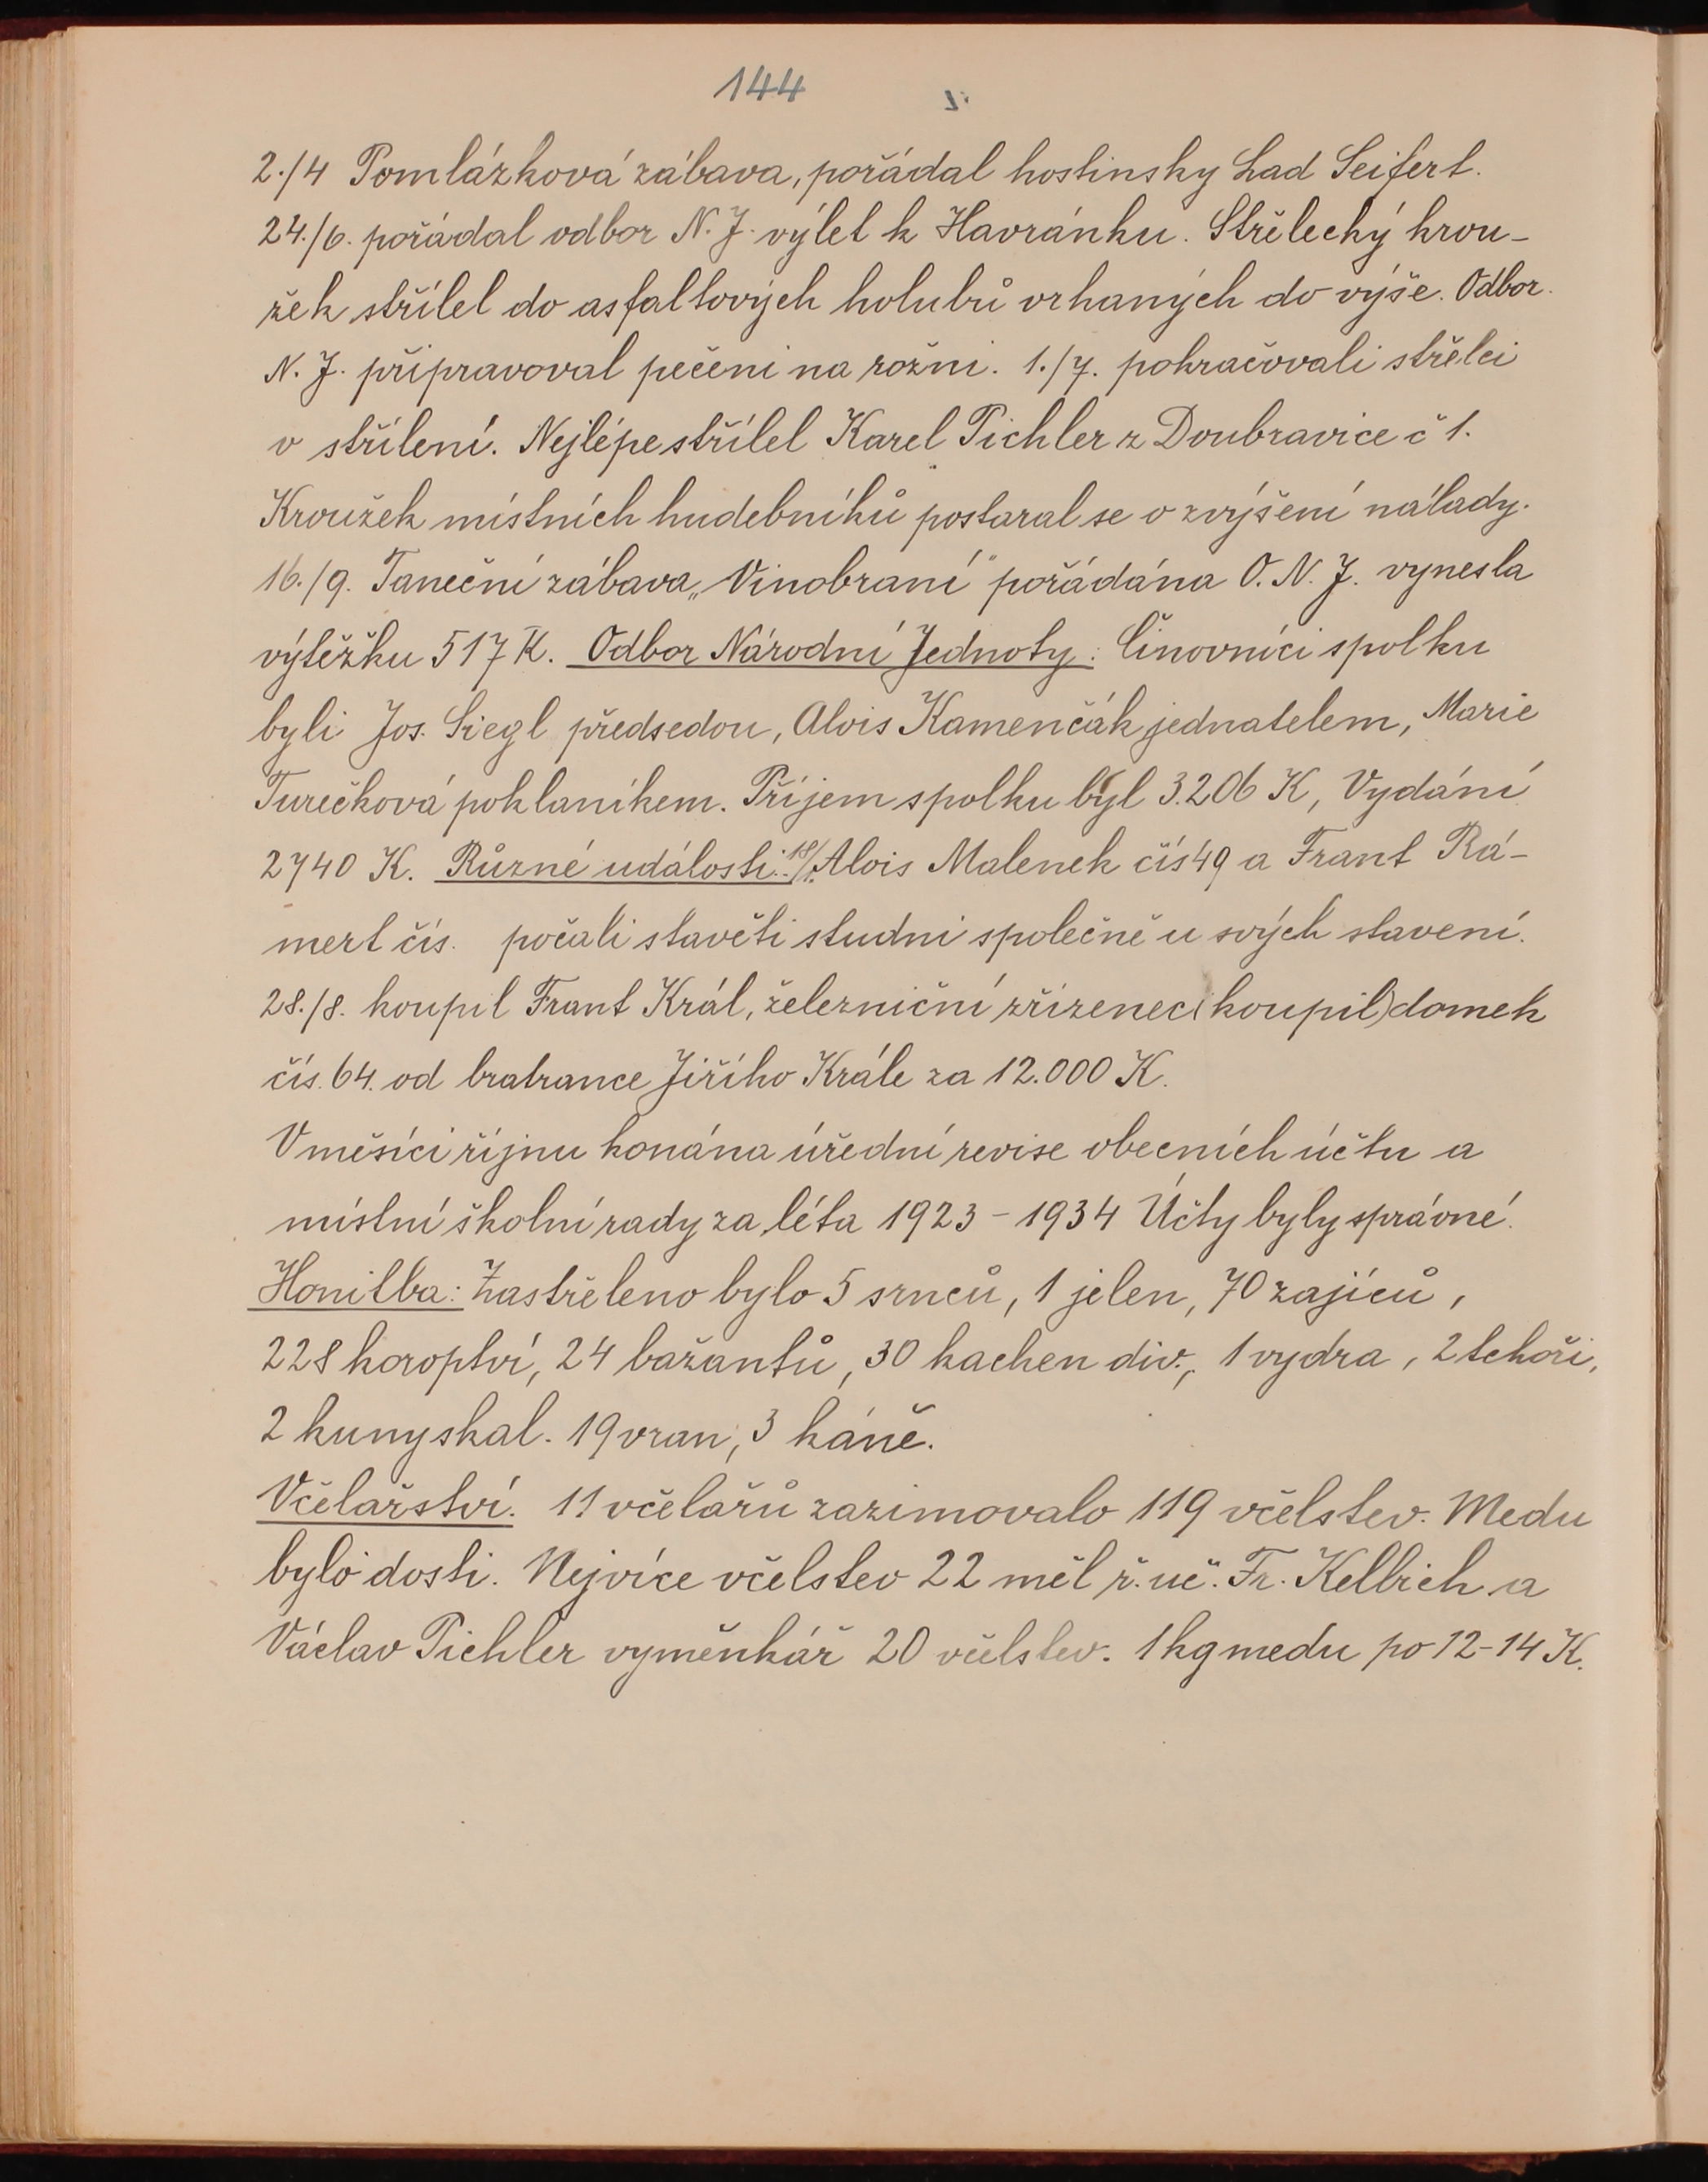 144
2./4 Pomlázková zábava, pořádal hostinsky Lad Seifert.
24./6. pořádal odbor N. J. výlet k Havránku. Střelecký krou-
žek střílel do asfaltových holubů vrhaných do výše. Odbor.
N. J. připravoval pečeni na rožni. 1./7. pokračovali střelci
v střílení. Nejlépe střílel Karel Pichler z Doubravice č 1.
Kroužek místních hudebníků postaral se o zvýšení nálady.
16./9. Taneční zábava „Vinobraní" pořádána O. N. J. vynesla
výtěžku 517 K. Odbor Národní Jednoty: Činovníci spolku
byli Jos. Siegl předsedou, Alois Kamenčák jednatelem, Marie
Turečková poklaníkem. Příjem spolku byl 3.206 K, Vydání
2740 K. Různé události: 18/1. Alois Malenek čís 49 a Frant Rá-
mert čís. počali stavěti studni společně u svých stavení.
28./8. koupil Frant Král, železniční zřízenec (koupil) domek
čís. 64. od bratrance Jiřího Krále za 12.000 K.
V měsíci říjnu konána úřední revise obecních účtu a
místní školní rady za léta 1923 - 1934 Účty byly správné.
Honitba: Zastřeleno bylo 5 srnců, 1 jelen, 70 zajíců,
228 koroptví, 24 bažantů, 30 kachen div., 1 vydra, 2 tchoři,
2 kuny skal. 19 vran, 3 káně.
Včelařství. 11 včelařů zazimovalo 119 včelstev. Medu
bylo dosti. Nejvíce včelstev 22 měl ř. uč. Fr. Kellrich a
Václav Pichler vyměnkář 20 včelstev. 1 kg medu po 12-14 K.